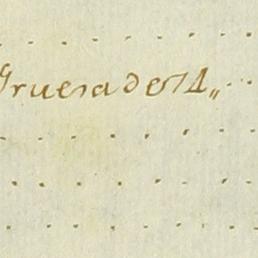 Gruesa de 74,,